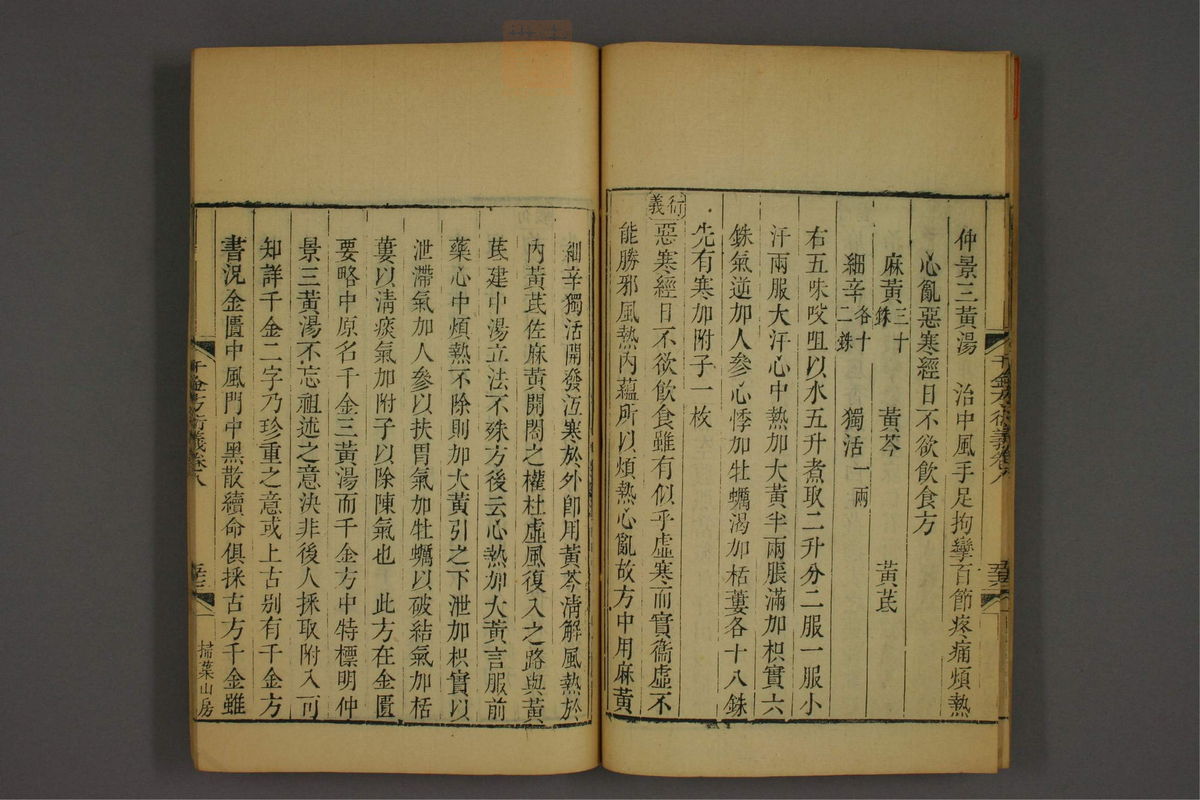 仲景三黃湯　治中風手足拘攣百節疼痛煩熱
心亂惡寒經日不欲飲食方
麻黃三十銖　黃芩　黃芪
細辛各十二銖　獨活一兩
右五味㕮咀以水五升煮取二升分二服一服小
汗兩服大汗心中熱加大黃半兩脹滿加枳實六
銖氣逆加人參心悸加牡蠣渴加栝蔞各十八銖
先有寒加附子一枚
衍義
惡寒經日不欲飲食雖有似乎虛寒而實衞虛不
能勝邪風熱內蘊所以煩熱心亂故方中用麻黃
千金方衍義卷八
細辛獨活開發沍寒於外卽用黃芩淸解風熱於
內黃芪佐麻黃開閤之權杜虛風復入之路與黃
芪建中湯立法不殊方後云心熱加大黃言服前
藥心中煩熱不除則加大黃引之下泄加枳實以
泄滯氣加人參以扶胃氣加牡蠣以破結氣加栝
蔞以淸痰氣加附子以除陳氣也　此方在金匱
要略中原名千金三黃湯而千金方中特標明仲
景三黃湯不忘祖述之意決非後人採取附入可
知詳千金二字乃珍重之意或上古別有千金方
書況金匱中風門中黑散續命俱採古方千金雖
千金方衍義卷八
掃葉山房